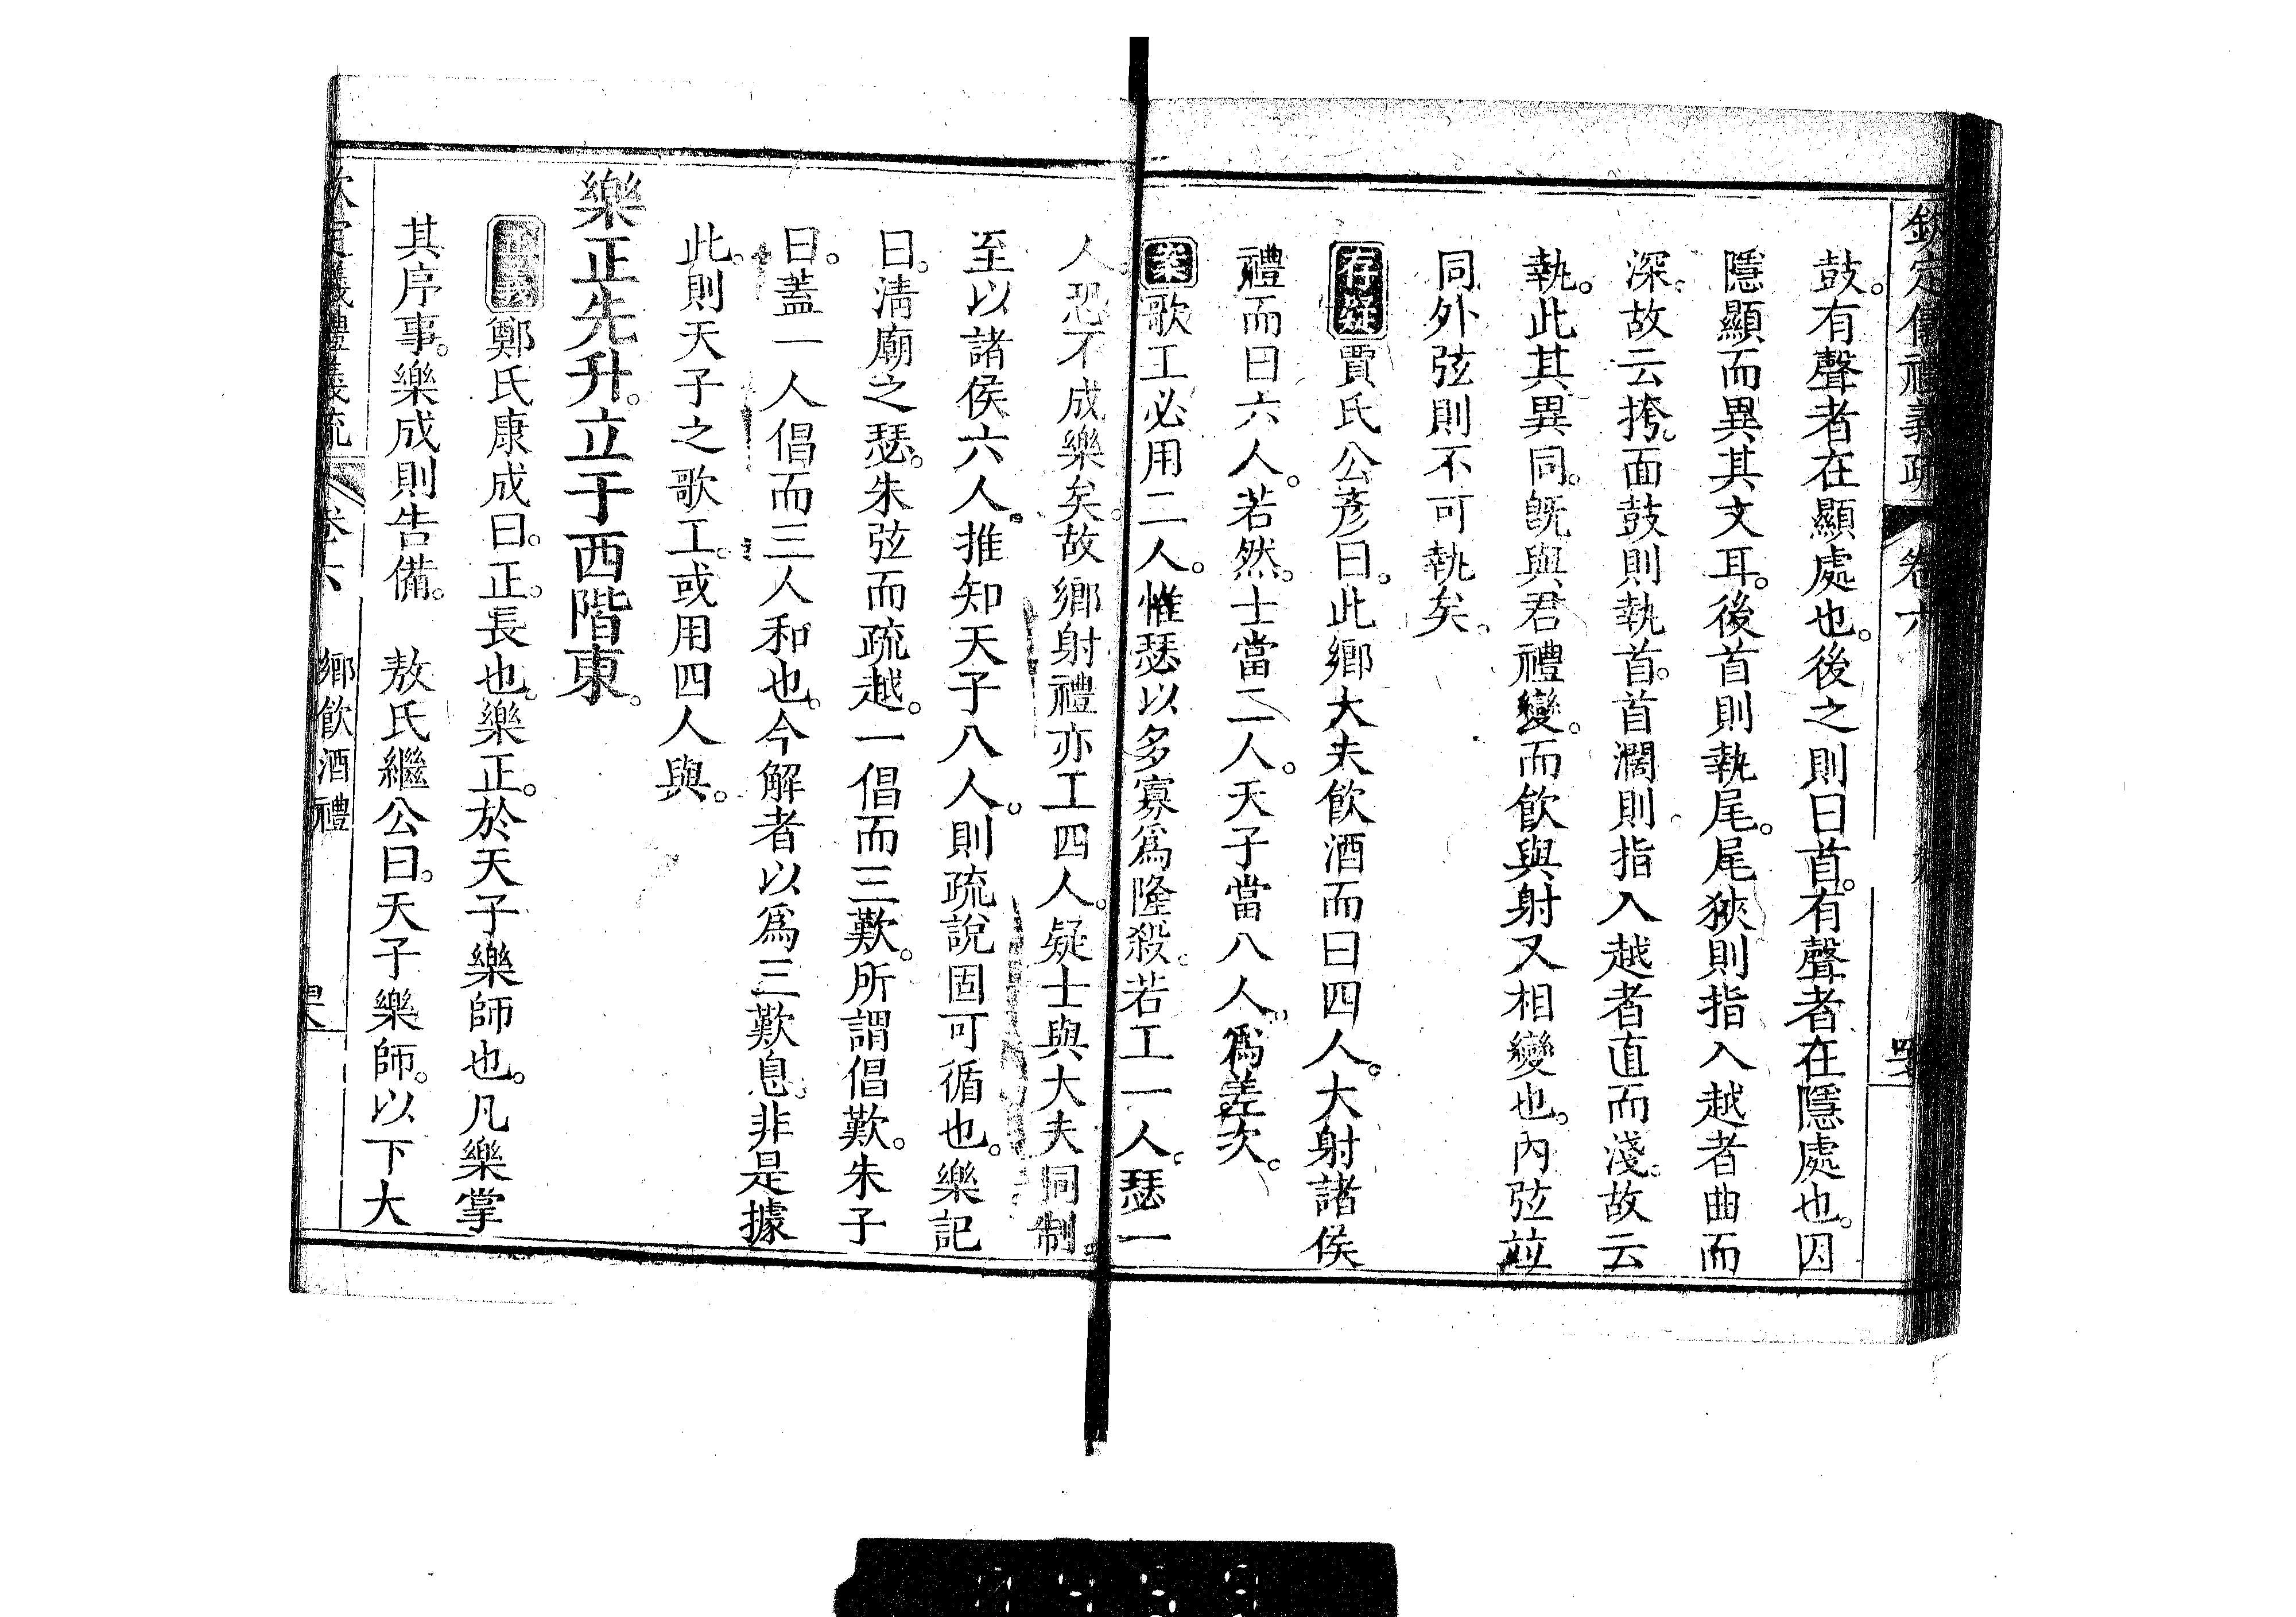 欽定儀禮義疏 卷六
鼓。有聲者在顯處也。後之則曰首。有聲者在隱處也。因
隱顯而異其文耳。後首則執尾。尾狹則指入越者曲而
深。故云挎。面鼓則執首。首濶則指入越者直而淺。故云
執。此其異同。旣與君禮變。而飮與射又相變也。內弦竝
同外弦則不可執矣。
存疑賈氏公彥曰。此鄉大夫飮酒而曰四人。大射諸侯
禮而曰六人。若然。士當二人。天子當八人。爲差次。
案歌工必用二人。惟瑟以多寡爲隆殺。若工一人。瑟一
人。恐不成樂矣。故鄉射禮亦工四人。疑士與大夫同制
至以諸侯六人。推知天子八人。則疏說固可循也。樂記
曰。淸廟之瑟。朱弦而疏越。一倡而三歎。所謂倡歎。朱子
曰。蓋一人倡而三人和也。今解者以爲三歎息。非是據
此。則天子之歌工。或用四人與。
樂正先升。立于西階東。
正義鄭氏康成曰。正。長也。樂正。於天子樂師也。凡樂掌
其序事。樂成則告備。 敖氏繼公曰。天子樂師。以下大
欽定儀禮義疏 卷六 鄉飮酒禮